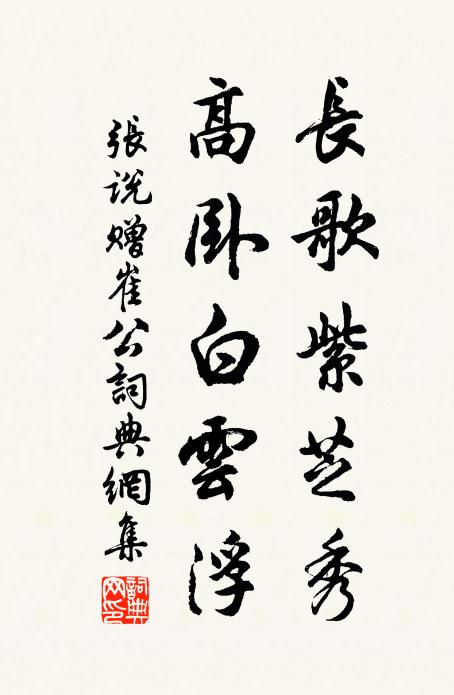 長歌紫芝秀
高臥白雲浮
張説贈崔公詞典網集
詞典网印